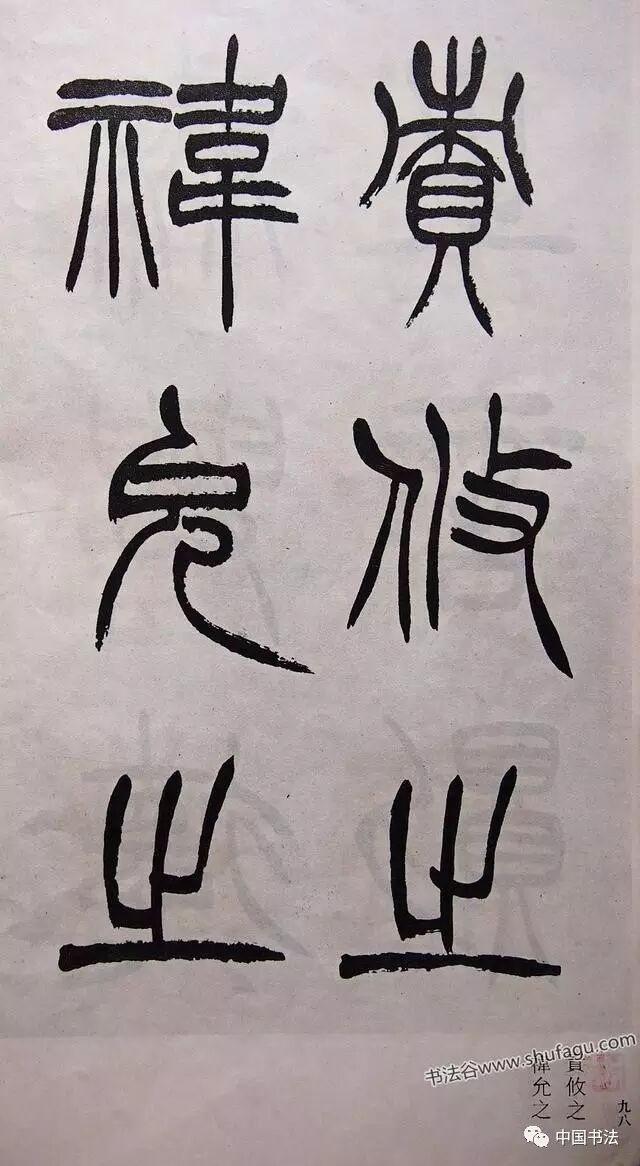 責攸之
禕允之
責攸之
禕允之
九八
书法谷www.shufagu.com
中国书法